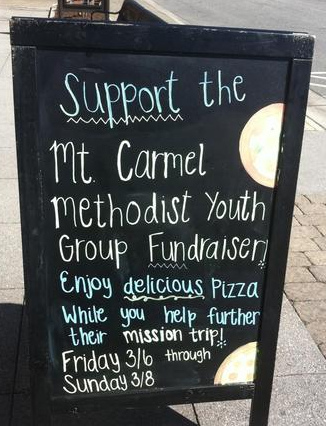 Support the
Mt. Carmel
Methodist Youth
Group Fundraiser!
Enjoy delicious Pizza
While you help further
their mission trip!
Friday 3/6 through
Sunday 3/8